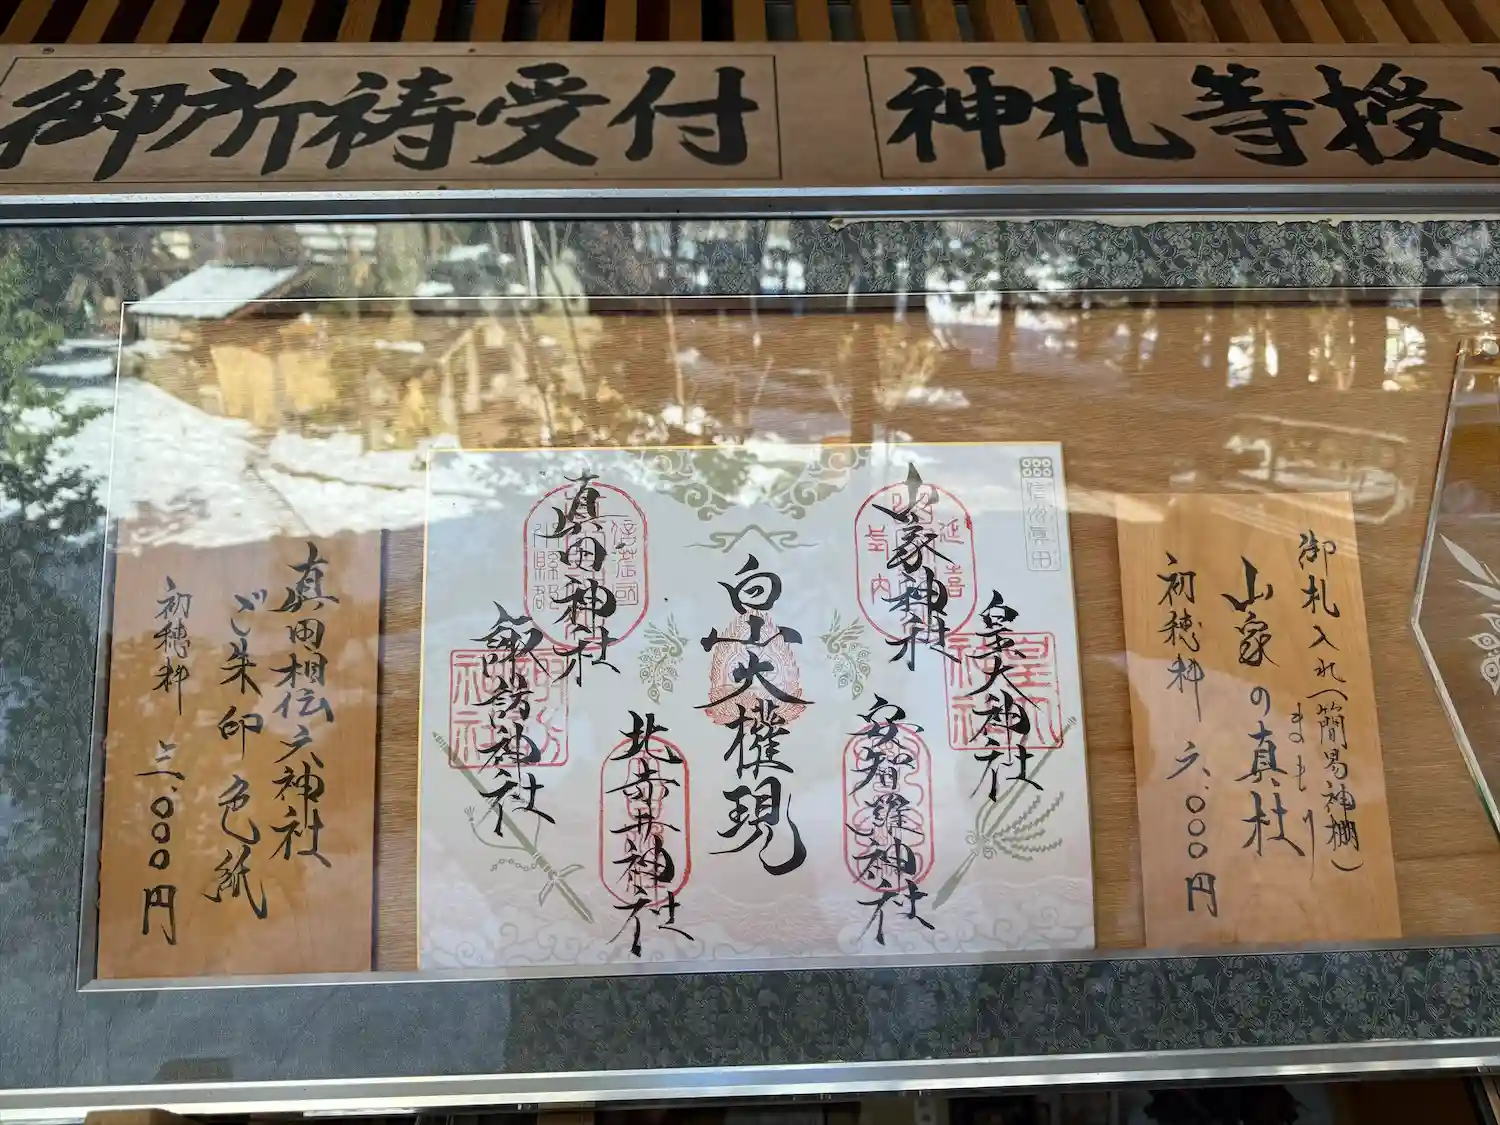 御祈祷受付
神札等授
御札入れ（簡易神棚）
山家の真杜
まもり
初穂料 六、〇〇〇円
信州真田
山家神社
延喜
式内
皇大神社
安智羅神社
白山大権現
真田神社
信濃國
小縣郡
北赤井神社
諏訪神社
真田相伝六神社
ご朱印色紙
初穂料 三、〇〇〇円